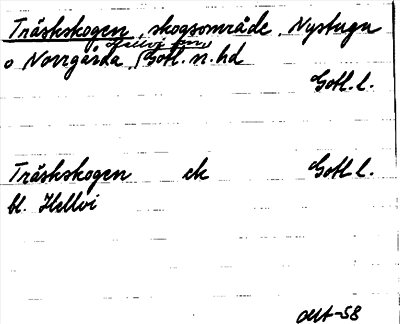 Träskskogen, skogsområde, Nystugu
Hellvi sn,
o Norrgårda, Gotl. n. hd
Gotl. l.
Träskskogen ek Gotl l.
bl. Hellvi